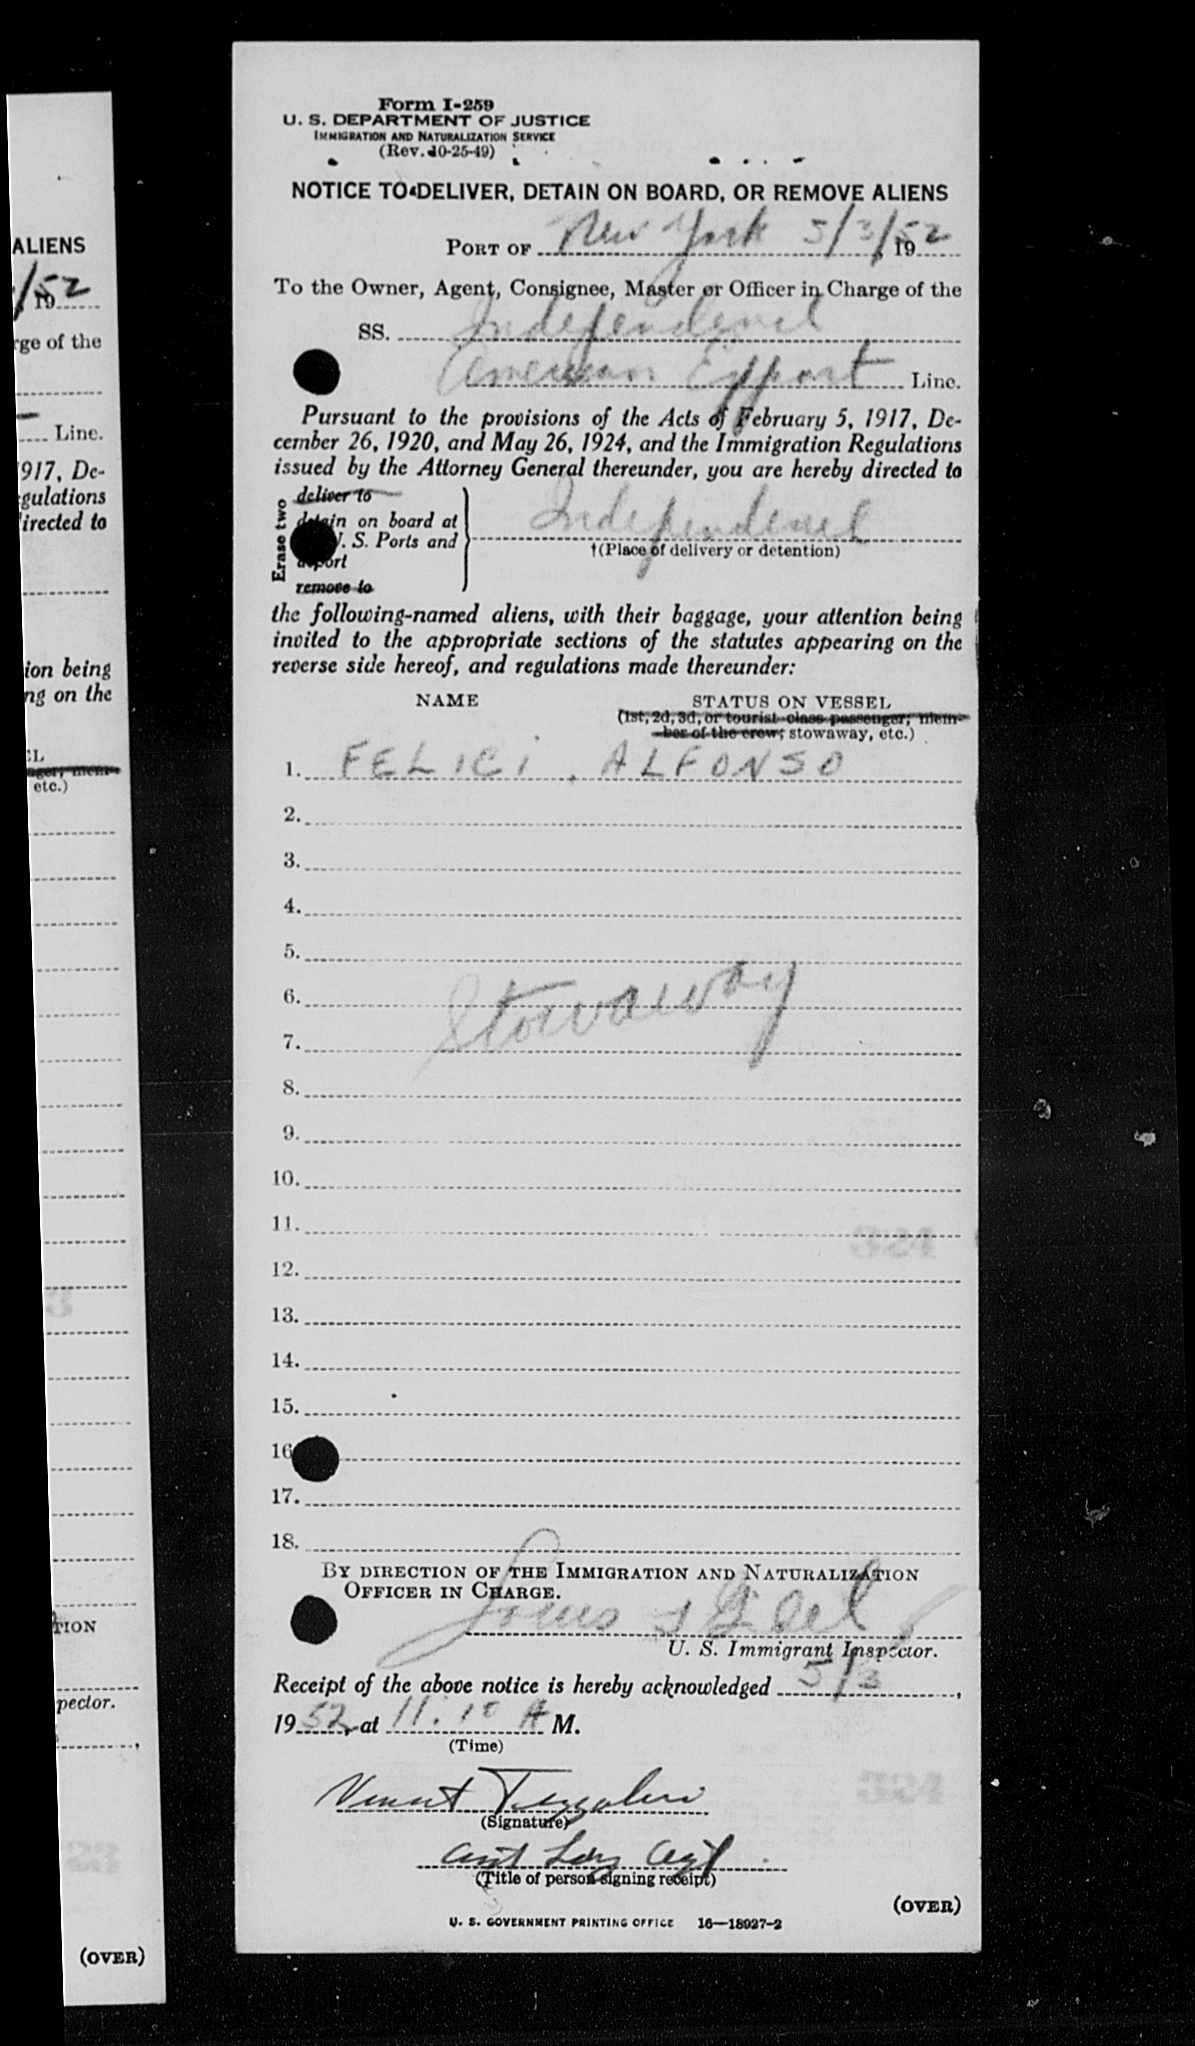 ALIENS
19 52
rge of the
Line.
1917, De-
gulations
directed to
ion being
ng on the
EL
etc.)
TION
pector.
(OVER)
Form I-259
U. S. DEPARTMENT OF JUSTICE
IMMIGRATION AND NATURALIZATION SERVICE
(Rev. 10-25-49)
NOTICE TO DELIVER, DETAIN ON BOARD, OR REMOVE ALIENS
PORT OF New York 5/3/, 1952
To the Owner, Agent, Consignee, Master or Officer in Charge of the
SS. Independence
American Export Line.
Pursuant to the provisions of the Acts of February 5, 1917, De-
cember 26, 1920, and May 26, 1924, and the Immigration Regulations
issued by the Attorney General thereunder, you are hereby directed to
Erase two
deliver to
detain on board at
U. S. Ports and
deport
remove to
Independence
†(Place of delivery or detention)
the following-named aliens, with their baggage, your attention being
invited to the appropriate sections of the statutes appearing on the
reverse side hereof, and regulations made thereunder:
NAME STATUS ON VESSEL
(1st, 2d, 3d, or tourist class passenger; mem-
ber of the crew; stowaway, etc.)
1. FELICI, ALFONSO
2.
3.
4.
5.
6. Stowaway
7.
8.
9.
10.
11.
12.
13.
14.
15.
16
17.
18.
BY DIRECTION OF THE IMMIGRATION AND NATURALIZATION
OFFICER IN CHARGE.
Louis
U. S. Immigrant Inspector.
Receipt of the above notice is hereby acknowledged 5/3,
1952, at 11:10 A M.
(Time)
Vincent
(Signature)
(Title of person signing receipt)
(OVER)
U. S. GOVERNMENT PRINTING OFFICE 16—18927-2